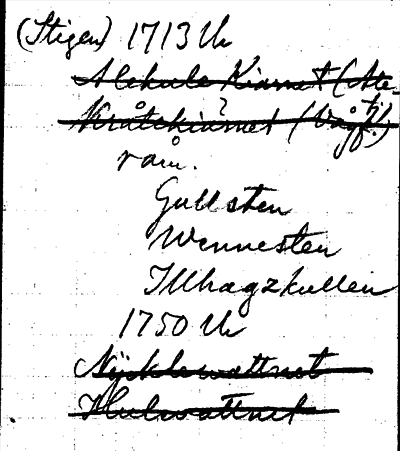 (Stigen) 1713 Uh
Alekule Kiarnet (Åte-
Kråtekiärnet (Vågfj!)
?
råm.
Gullsten
Wennesten
Illhagzkullen
1750 Uh
Nÿcklewattnet
Hulwattnet